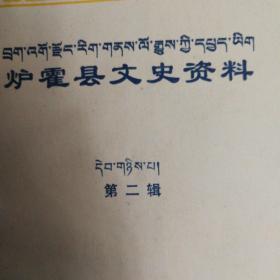 བྲག་འགོ་རྫོང་རིག་གནས་ལོ་རྒྱུས་ཀྱི་དཔྱད་ཡིག
炉霍县文史资料
དེབ་གཉིས་པ།
第二辑